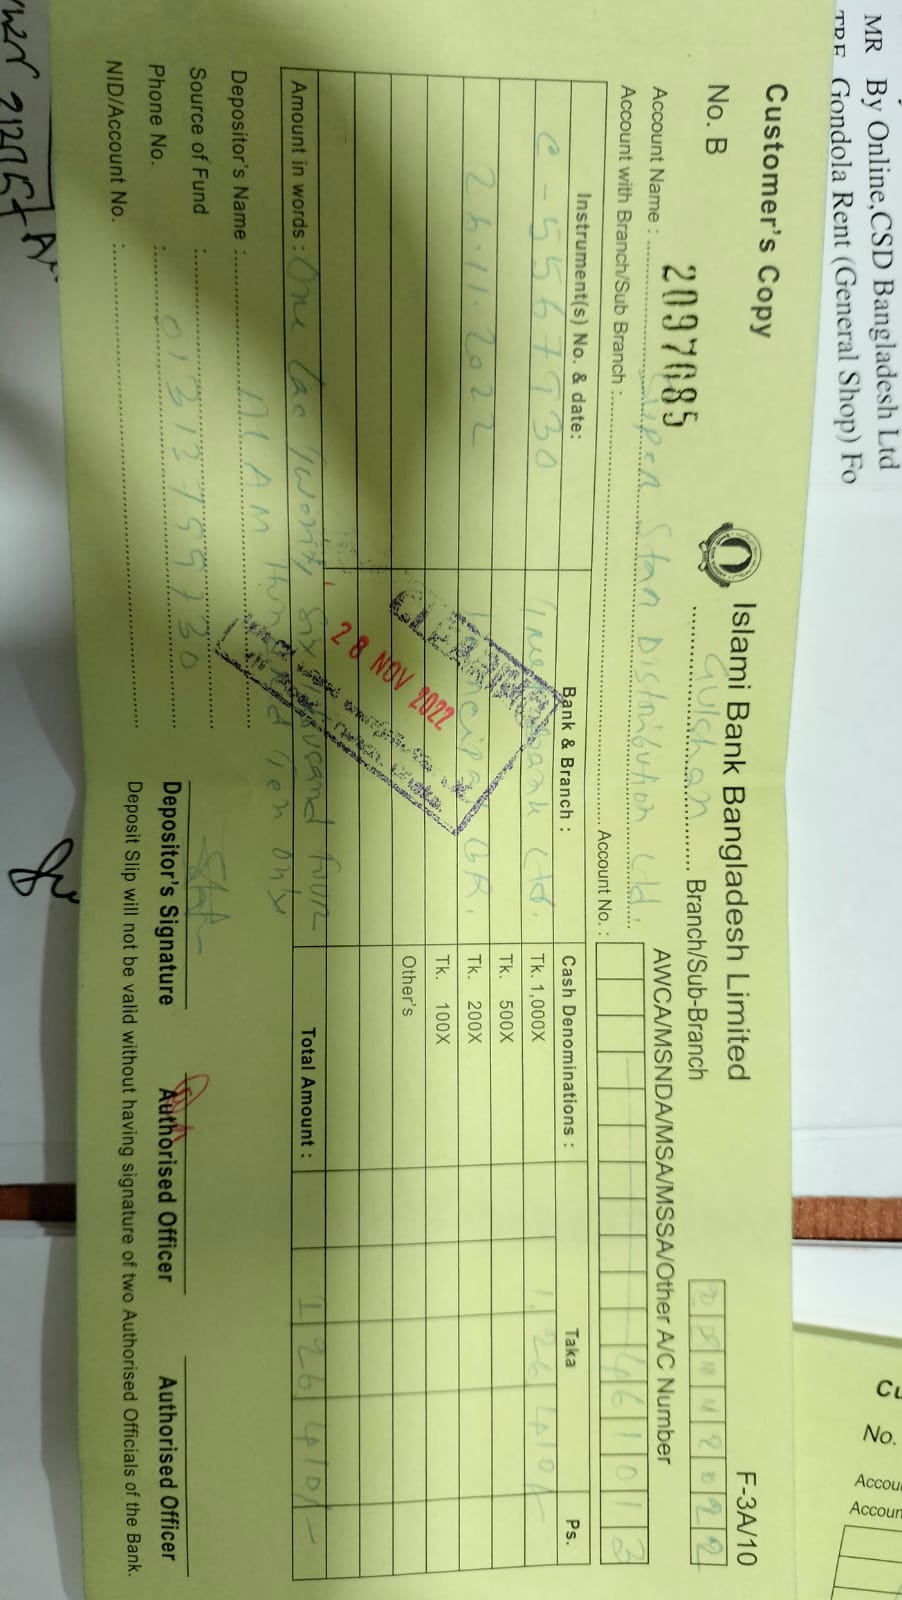 MR By Online,CSD Bangladesh Ltd
Gondola Rent (General Shop) Fo
Customer's Copy
Islami Bank Bangladesh Limited
F-3A/10
No. B 2097085
Gulshan Branch/Sub-Branch
28112022
Account Name : Super Star Distribution Ltd.
AWCA/MSNDA/MSA/MSSA/Other A/C Number
Account with Branch/Sub Branch : Account No. :
461013
Instrument(s) No. & date: Bank & Branch : Cash Denominations : Taka Ps.
C-5567930 Bank Ltd. Tk. 1,000X 1,26,410/-
Tk. 500X
26.11.2022 BR. Tk. 200X
Tk. 100X
Other's
CLEARING
28 NOV 2022
Amount in words : One Lac Twenty Six Thousand Four Hundred Ten Only
Total Amount : 126410/-
Depositor's Name : MAM
Source of Fund :
Phone No. : 01313799730
NID/Account No. :
Depositor's Signature Authorised Officer Authorised Officer
Deposit Slip will not be valid without having signature of two Authorised Officials of the Bank.
No.